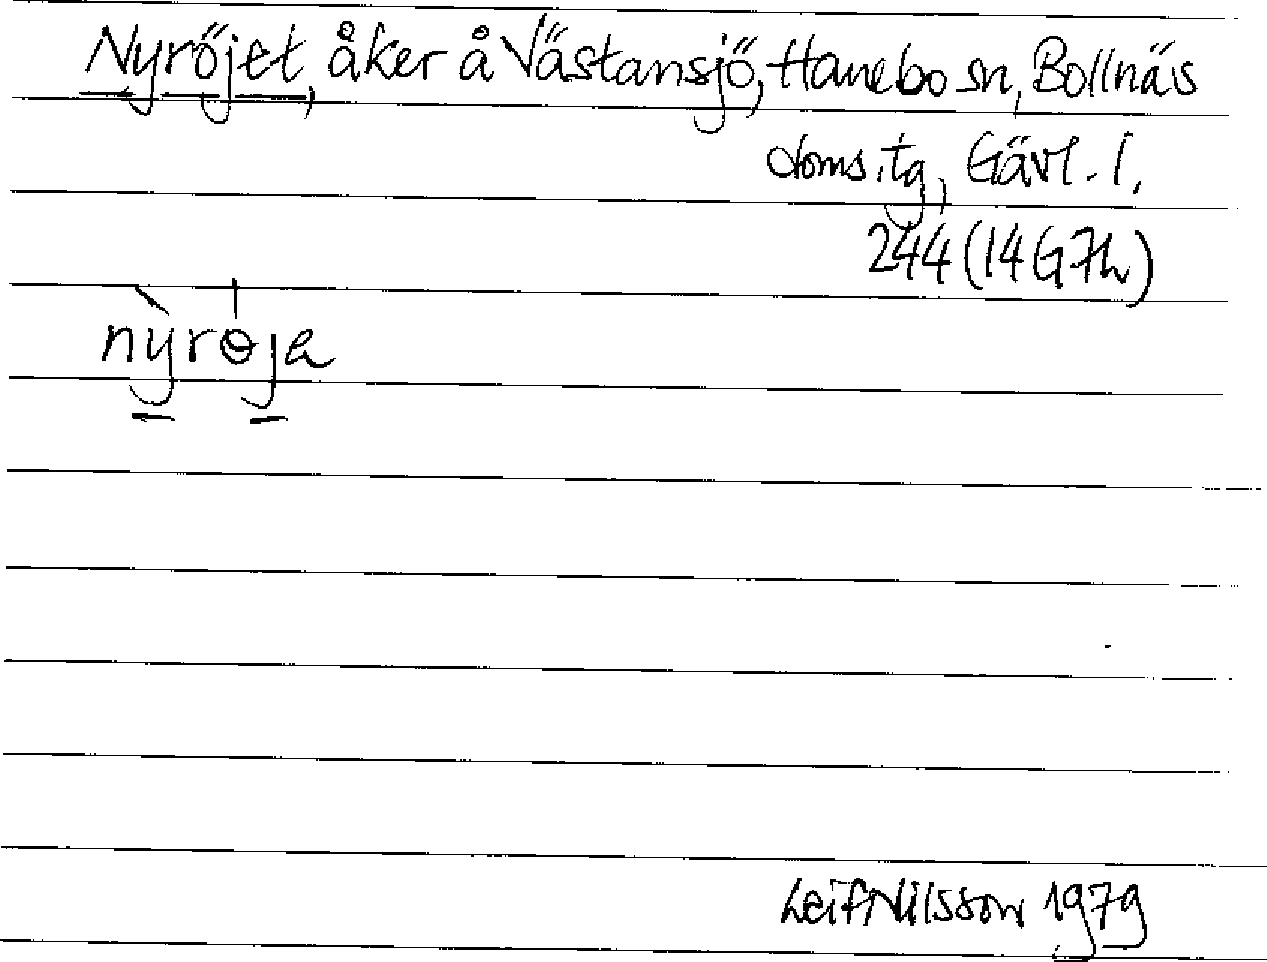 Nyröjet, åker å Västansjö, Hanebo sn, Bollnäs
doms.tg, Gävl. l.
244 (14G7h)
nỳrɵja
Leif Nilsson 1979